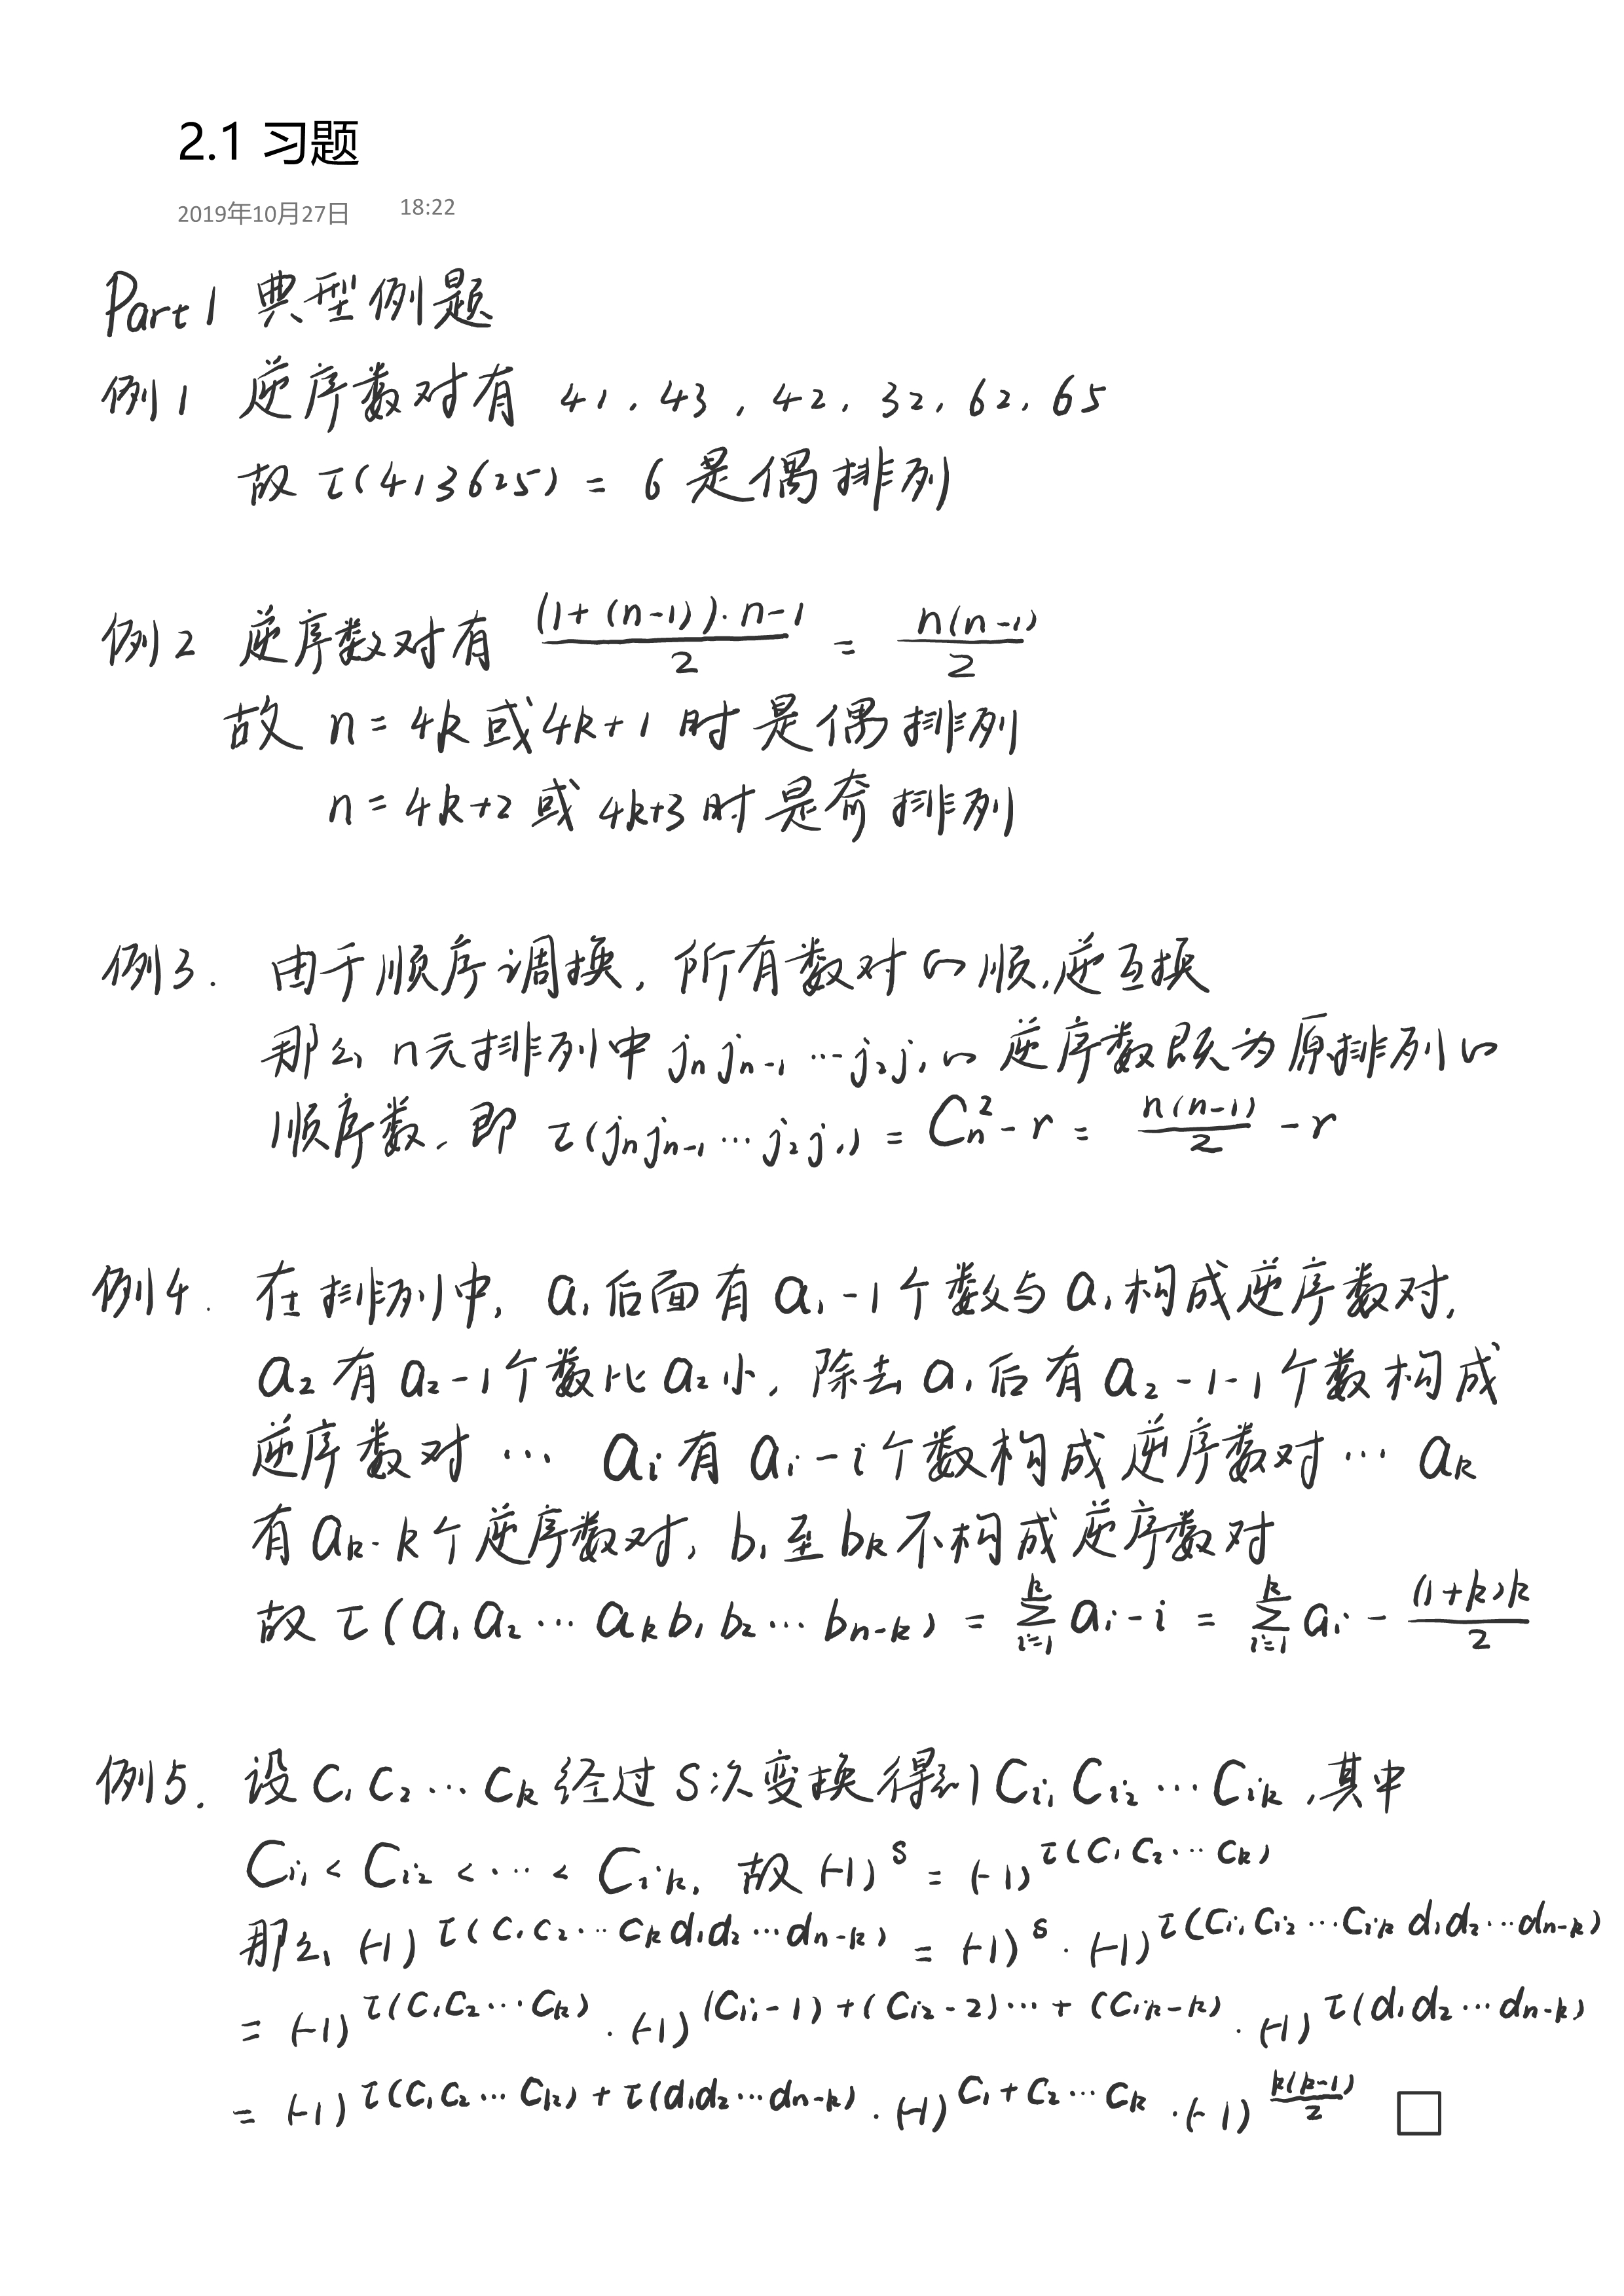 2.1 习题
2019年10月27日 18:22
Part 1 典型例题
例1 逆序数对有 41, 43, 42, 32, 62, 65
故 τ(413625) = 6 是偶排列
例2 逆序数对有 \frac{(1+(n-1))·n-1}{2} = \frac{n(n-1)}{2}
故 n = 4k 或 4k+1 时是偶排列
n = 4k+2 或 4k+3 时是奇排列
例3. 由于顺序调换, 所有数对的顺,逆互换
那么 n元排列中 j_n j_{n-1} … j_2 j_1 的逆序数既为原排列的
顺序数, 即 τ(j_n j_{n-1} … j_2 j_1) = C_n^2 - r = \frac{n(n-1)}{2} - r
例4. 在排列中, a_1 后面有 a_1 - 1 个数与 a_1 构成逆序数对,
a_2 有 a_2 - 1 个数比 a_2 小, 除去 a_1 后有 a_2 - 1 - 1 个数构成
逆序数对 … a_i 有 a_i - i 个数构成逆序数对 … a_k
有 a_k - k 个逆序数对, b_1 至 b_k 不构成逆序数对
故 τ(a_1 a_2 … a_k b_1 b_2 … b_{n-k}) = \sum_{i=1}^{k} a_i - i = \sum_{i=1}^{k} a_i - \frac{(1+k)k}{2}
例5. 设 C_1 C_2 … C_k 经过 S 次变换得到 C_{i_1} C_{i_2} … C_{i_k}, 其中
C_{i_1} < C_{i_2} < … < C_{i_k}, 故 (-1)^s = (-1)^{τ(C_1 C_2 … C_k)}
那么 (-1)^{τ(C_1 C_2 … C_k d_1 d_2 … d_{n-k})} = (-1)^s · (-1)^{τ(C_{i_1} C_{i_2} … C_{i_k} d_1 d_2 … d_{n-k})}
= (-1)^{τ(C_1 C_2 … C_k)} · (-1)^{(C_{i_1} - 1) + (C_{i_2} - 2) … + (C_{i_k} - k)} · (-1)^{τ(d_1 d_2 … d_{n-k})}
= (-1)^{τ(C_1 C_2 … C_k) + τ(d_1 d_2 … d_{n-k})} · (-1)^{C_1 + C_2 … C_k} · (-1)^{\frac{k(k-1)}{2}} □